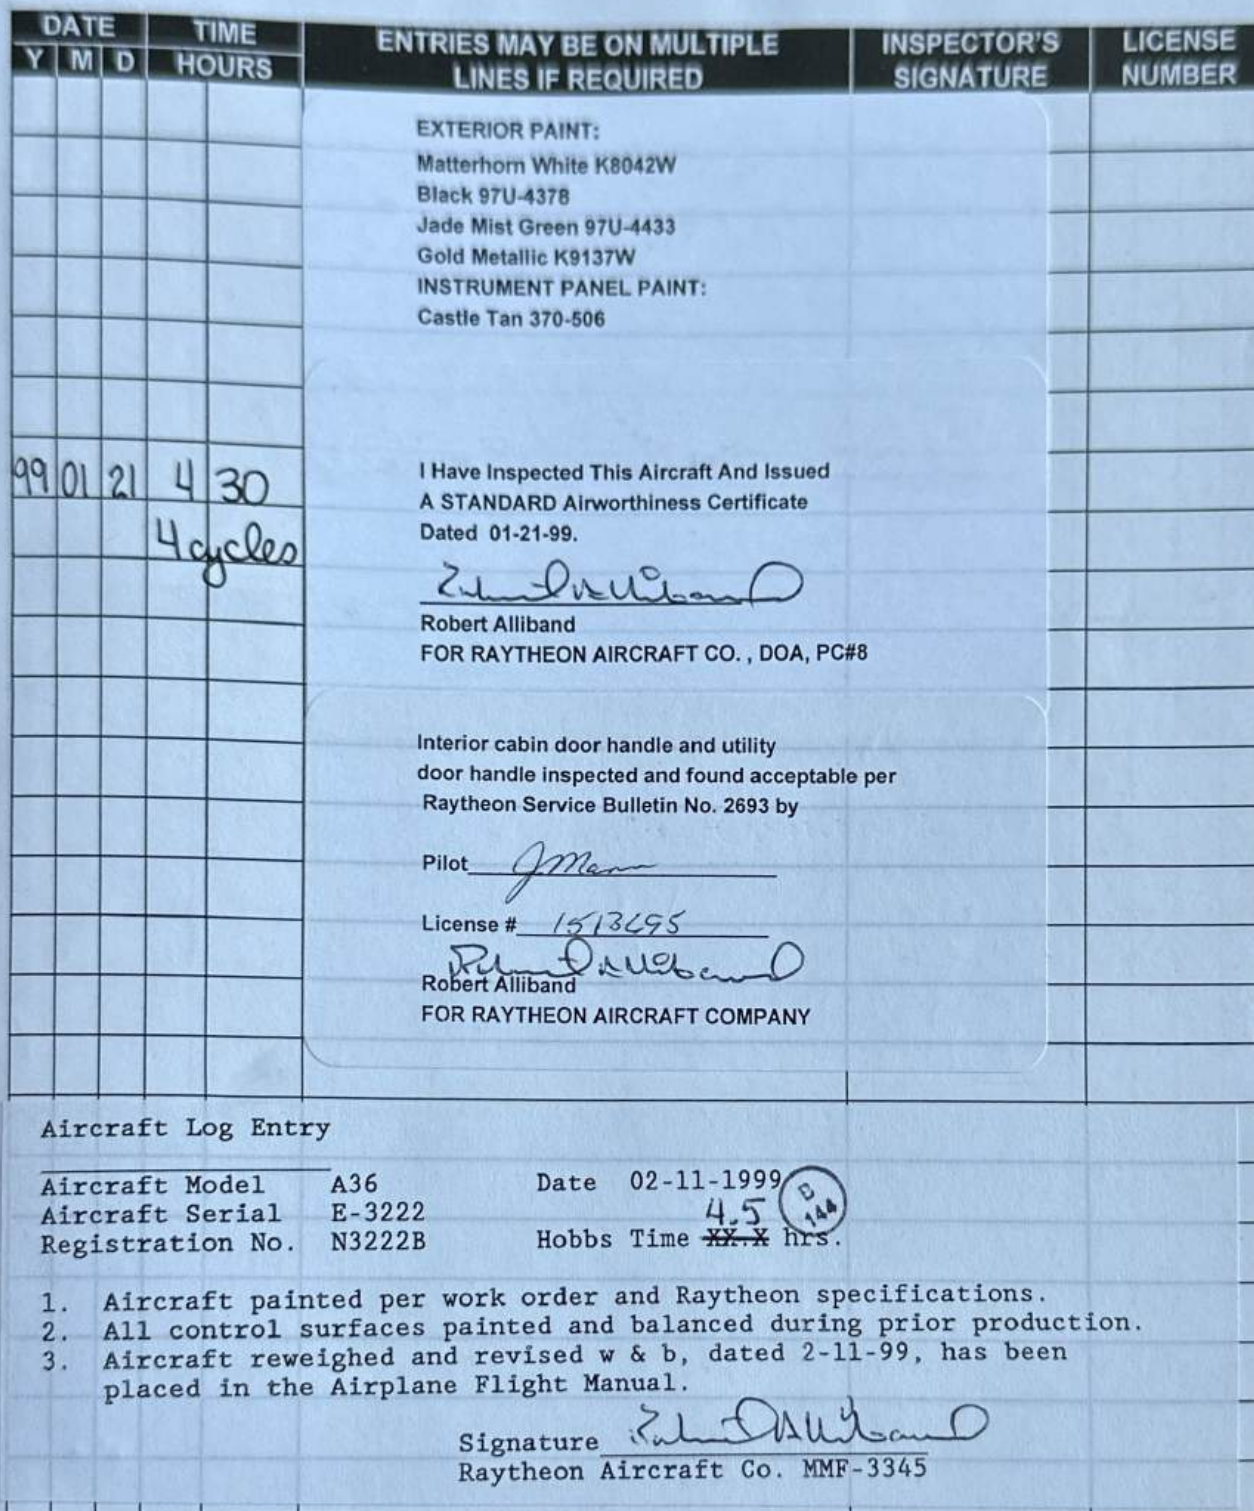 DATE
TIME
ENTRIES MAY BE ON MULTIPLE
INSPECTOR'S
LICENSE
Y M D
HOURS
LINES IF REQUIRED
SIGNATURE
NUMBER
EXTERIOR PAINT:
Matterhorn White K8042W
Black 97U-4378
Jade Mist Green 97U-4433
Gold Metallic K9137W
INSTRUMENT PANEL PAINT:
Castle Tan 370-506
99 01 21 4 30
4 cycles
I Have Inspected This Aircraft And Issued
A STANDARD Airworthiness Certificate
Dated 01-21-99.
Robert Alliband
FOR RAYTHEON AIRCRAFT CO. , DOA, PC#8
Interior cabin door handle and utility
door handle inspected and found acceptable per
Raytheon Service Bulletin No. 2693 by
Pilot JMann
License #
Robert Alliband
FOR RAYTHEON AIRCRAFT COMPANY
Aircraft Log Entry
Aircraft Model A36 Date 02-11-1999
Aircraft Serial E-3222 4.5 B 144
Registration No. N3222B Hobbs Time XX.X hrs.
1. Aircraft painted per work order and Raytheon specifications.
2. All control surfaces painted and balanced during prior production.
3. Aircraft reweighed and revised w & b, dated 2-11-99, has been
placed in the Airplane Flight Manual.
Signature
Raytheon Aircraft Co. MMF-3345